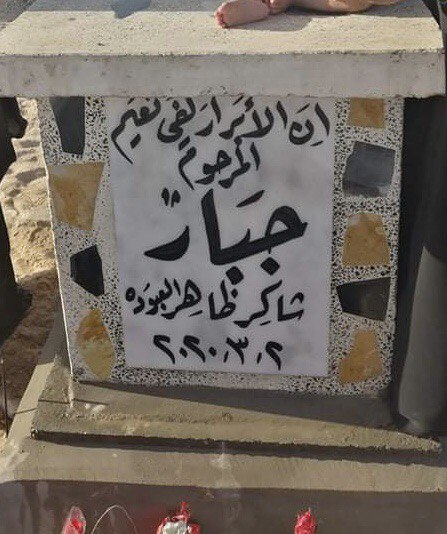 إن الأبرار لفي نعيم
المرحوم
جبار
شاكر ظاهر العبوده
٢٠٢٠.٣.٢